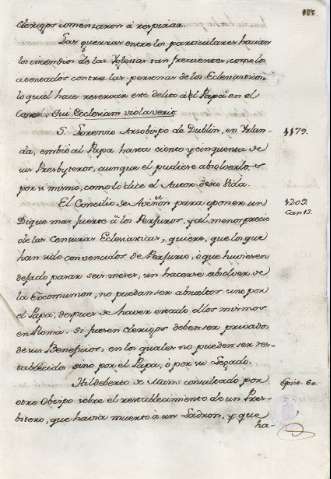 Clerigos comenzaron à respirar.
Las guerras entre los particulares hacian
los incendios de las Yglesias tan frequentes, como lo
atentados contra las personas de los Eclesiasticos,
lo qual hace reservar este delito al Papa en el
Canon, Qui Ecclesiam violaverit.
S. Lorenzo Arzobispo de Dublin, en Yrlan-
da, embió al Papa hasta ciento y cinquenta de
sus Presbyteros, aunque el pudiese absolverlos,
por si mismo, como lo dice el Autor de su Vida.
1179.
El Concilio de Aviñon para oponer un
Dique mas fuerte à los Perjuros, y al menosprecio
de las Censuras Eclesiasticas, quiere, que lo que
han sido convencidos de Perjurio, o que huviesen
dejado pasar seis meses, sin hacerse absolver de
la Excomunion, no puedan ser absueltos sino por
el Papa, despues de haver estado ellos mismos
en Roma. Si fuesen Clerigos deben ser privados
de sus Beneficios, en los quales no pueden ser res-
tablecidos sino por el Papa, ò por su Legado.
1209.
Can. 13.
Hildeberto de Mans consultado por
otro Obispo sobre el restablecimiento de un Pres-
bitero, que havia muerto à un Ladron, y que
ha-
Epist. 60.